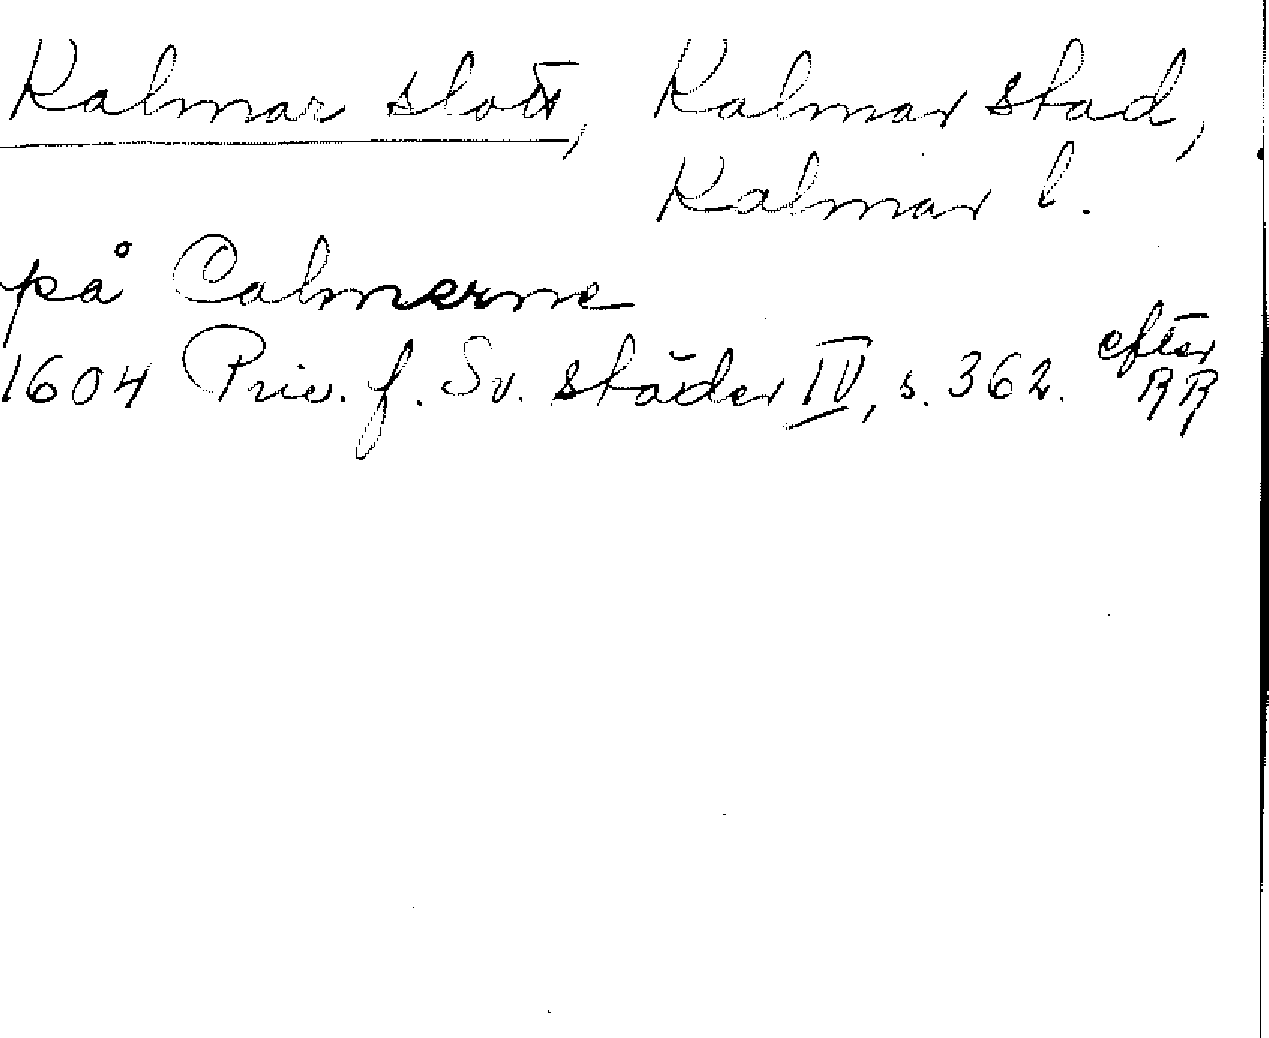 Kalmar slott, Kalmar stad,
Kalmar l.
på Calmerne
1604 Priv. f. Sv. städer IV, s. 362. efter
RR